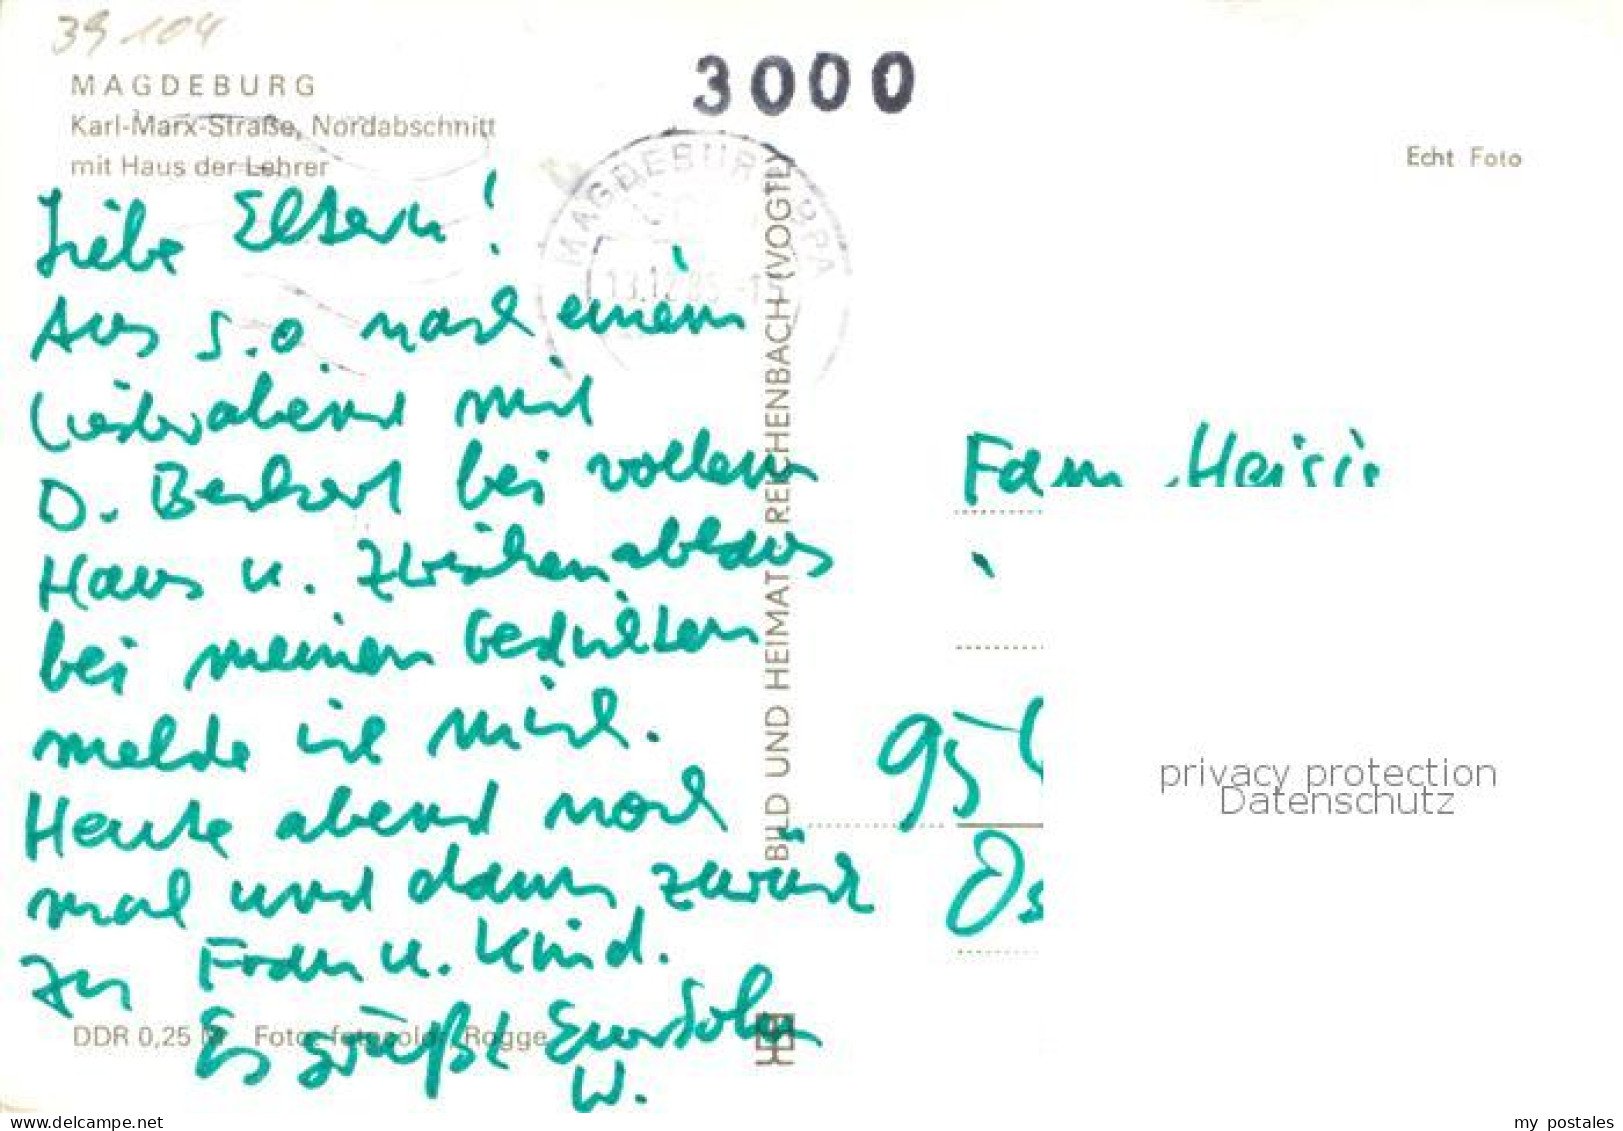 39 104
MAGDEBURG
Karl-Marx-Straße, Nordabschnitt
mit Haus der Lehrer
3000
Echt Foto
MAGDEBURG BPA
Liebe Eltern!
Aus s.o nach einem
Liederabend mit
D. bei vollem
Haus u. Zwischenapplaus
bei meinen Gedichten
melde ich mich.
Heute abend noch
mal und dann zurück
zu Frau u. Kind.
Es grüßt Euer Sohn
W.
DDR 0,25 M Foto: fotocolor, Rogge
BILD UND HEIMAT REICHENBACH (VOGTL
Fam
95
Os
privacy protection
Datenschutz
akpool.de
my postales